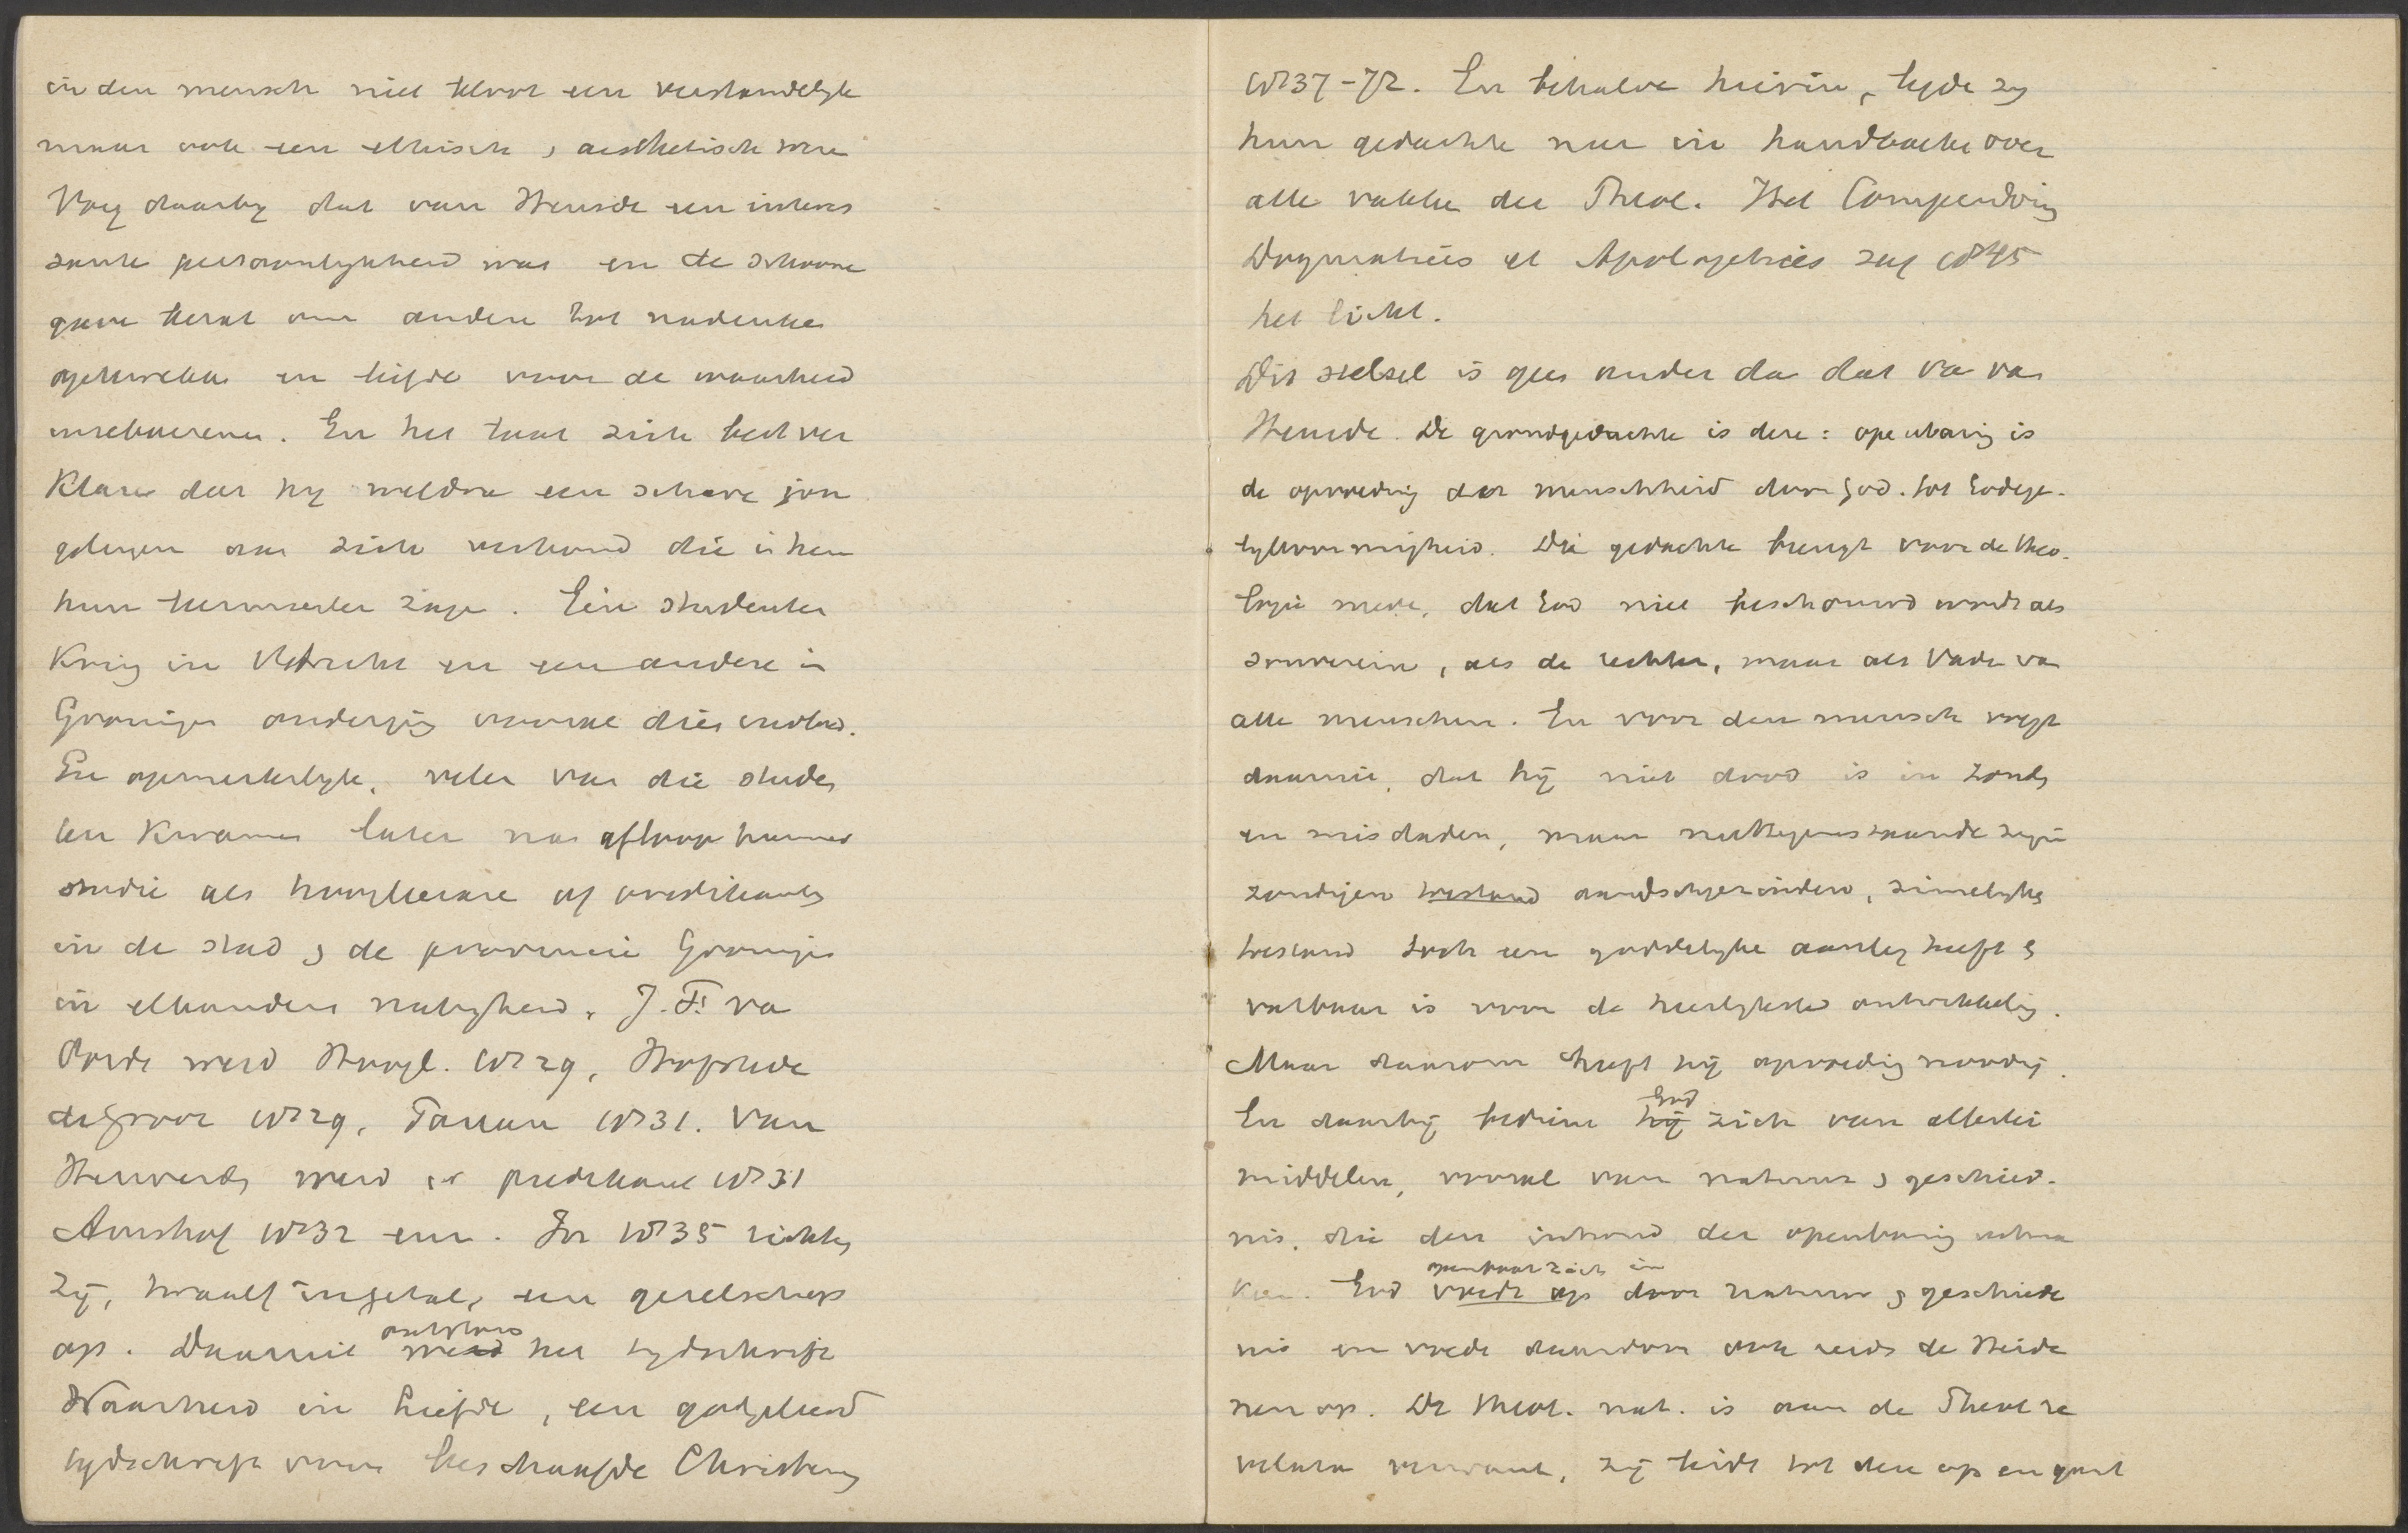 in den mensch niet alleen een verstandelyk
maar ook een ethisch, aesthetisch were
Voeg daarby dat van Heusde een interes
sante persoonlykheid was en de schoone
gave bezat om andere tot nadenken
opwekken en liefde voor de waarheid
inreboezemen. En het laat zich best ver
klaren dat hy weldra een schare jon
gelingen om zich verbond die in hem
hun leermeester zagen. Een studenten
Kring in Utrecht en een andere in
Groningen onderging vooral dien invloed.
En opmerkelyk, velen van die studen
ten kwamen later na afloop hunner
studie als hoogleeraren of predikants
in de stad & de provincie Groningen
in elkanders nabyheid. J. F. va
Oordt werd Hoogl. 1829, Hofstede
de Groot 1829, Pareau 1831. Van
Herwerden werd er predikant 1831
Amshof 1832 enz. In 1835 richtten
zij, twaalf in getal, een gezelschap
op. Daarmee ontstond werd het tydschrift
Waarheid in Liefde, een godgeleerd
tydschrift voor beschaafde Christenen
1837-72. En behalve hierin, legde zy
hun gedachte neer in handboeken over
alle vakken der Theol. Het Compendium
Dogmatices et Apologetices zag 1845
het licht.
Dit stelsel is geen ander dan dat va van
Heusde. De grondgedachte is deze: openbaring is
de opvoeding der menschheid door God tot Godege-
lykvormigheid. Die gedachte brengt voor de theo-
logie mede, dat God niet beschouwd wordt als
souverein, als de rechter, maar als Vader van
alle menschen. En voor den mensch volgt
daaruit, dat hij niet dood is in zonden
en misdaden, maar niettegenstaande zijn
zondigen toestand aardschgezinden, zinnelyken
toestand toch een goddelyke aanleg heeft &
vatbaar is voor de heerlykste ontwikkeling.
Maar daarom heeft hij opvoeding noodig.
En daarbij bedient hij God zich van allerlei
middelen, vooral van natuur & geschied-
nis, die den inhoud der openbaring uitma
ken. God voedt op openbaart zich in door natuur & geschiede
nis en voedt daardoor ook reeds de Heide
nen op. De theol. nat. is aan de Theol re
velata verwant, zij leidt tot deze op en gaat